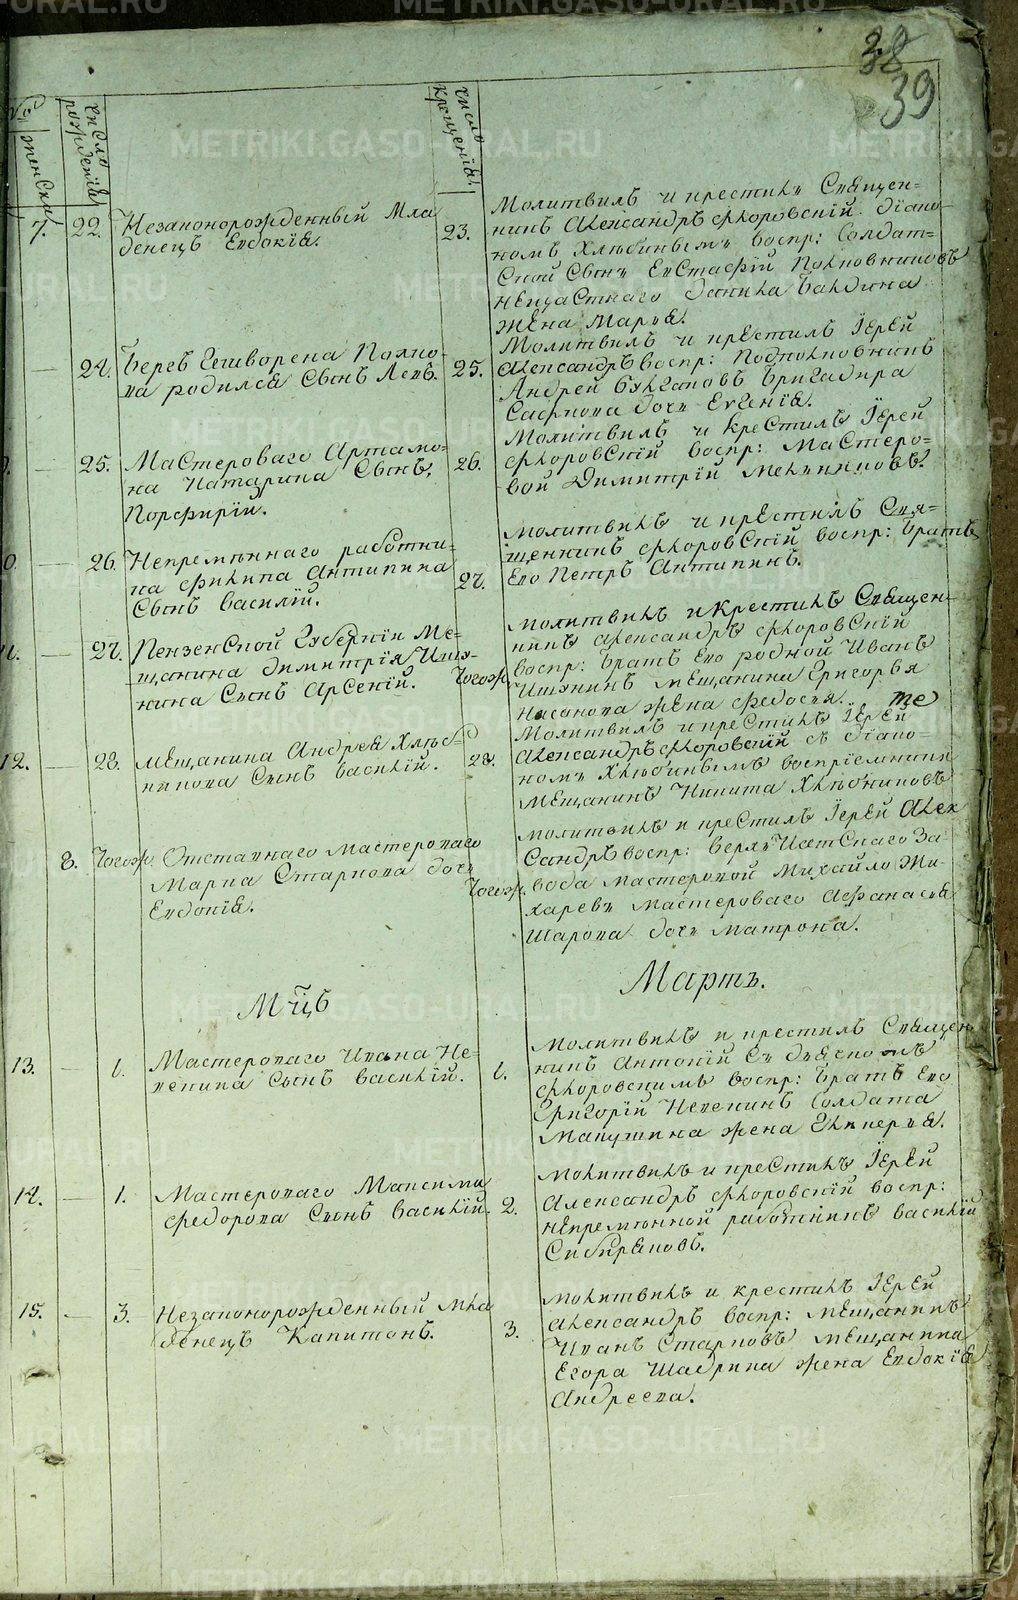 38
39
№ женска
число рожденія
число крещенія
7. 22. Незаконорожденный Мла
денецъ Евдокія.
23. Молитвилъ и крестилъ Священ=
никъ Александръ Флоровскій діако=
номъ Хлюбинымъ воспр: Солдат=
ской Сынъ Евстафій Полковниковъ
жена Марья.
24. Бергъ Гешворена
родился Сынъ Левъ.
25. Молитвилъ и крестилъ Іерей
Александръ воспр: Подполковникъ
Андрей Булгаковъ Бригадира
дочь Евгенія.
25. Мастероваго Артамо=
на Сынъ
Порфирій.
26. Молитвилъ и крестилъ Іерей
Флоровскій воспр: Мастеро=
вой Димитрій
26. Непремѣннаго работни=
ка Филипа Антипина
Сынъ Василій.
27. Молитвилъ и крестилъ Свя=
щенникъ Флоровскій воспр: Братъ
Его Петръ Антипинъ.
27. Пензенской Губерніи Ме=
щанина Димитрія
Сынъ Арсеній.
Тогож. Молитвилъ и крестилъ Священ=
никъ Александръ Флоровскій
воспр: Братъ Его родной Иванъ
Мещанина Григорья
жена Федосья.
12. 28. Мещанина Андрея Хлѣб=
никова Сынъ Василій.
28. Молитвилъ и крестилъ Іерей
Александръ Флоровскій съ діако=
номъ Хлюбинымъ воспріемникъ
Мещанинъ Никита Хлѣбниковъ
8. Тогож. Отставнаго мастероваго
Марка Старкова дочь
Евдокія.
Тогож. Молитвилъ и крестилъ Іерей Алек
сандръ воспр: Верхъ Исетскаго За=
вода мастеровой Михайло Жи=
харевъ мастероваго Афанасья
Шарова дочь Матрона.
Мцъ Мартъ.
13. 1. Мастероваго Ивана Не=
пеина Сынъ Василій.
1. Молитвилъ и крестилъ Священ
никъ Антоній съ діакономъ
Флоровскимъ воспр: Братъ Его
Григорій Солдата
жена Гликерья.
14. 1. Мастероваго Максима
Федорова Сынъ Василій.
2. Молитвилъ и крестилъ Іерей
Александръ Флоровскій воспр:
непремѣнной работникъ Василій
Сибиряковъ.
15. 3. Незаконорожденный мла
денецъ Капитонъ.
3. Молитвилъ и крестилъ Іерей
Александръ воспр: Мещанинъ
Иванъ Старковъ мещанина
Егора Шадрина жена Евдокія
Андреева.
METRIKI.GASO-URAL.RU